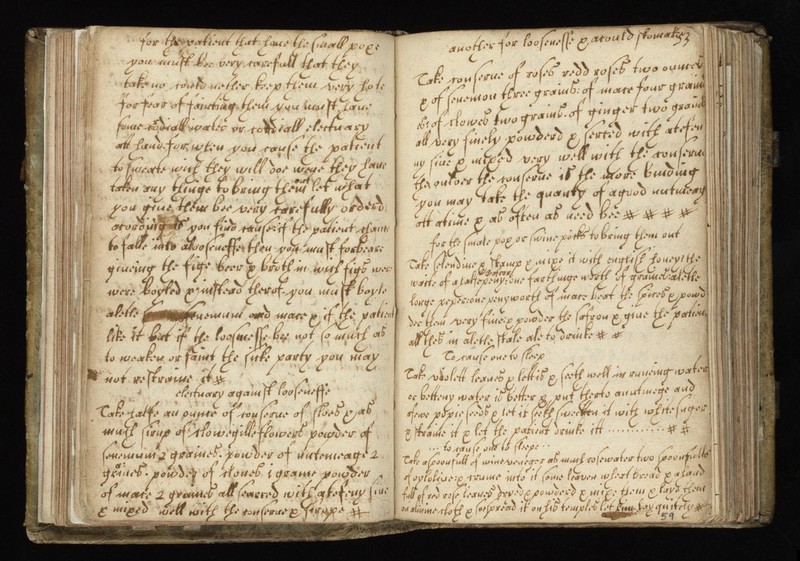 for the patient that have the small poxe
you must bee very carefull that they
take no could nether keep them very hote
for feare of fainting them you must have
some cordiall water or cordiall electuary
att hand for when you cause the patient
to sweate wich they will doe were they have
taken any thinge to bring them out let what
you give them bee very carefully orderd
acording as you find cause if the patient chance
to falle into a loosenesse then you must forbeare
giveing the figs beere & broth in wich figs were
were boyled & instead therof you must boyle
aletle senemum and mace & if the patient
like it but if the loosnesse bee not so much as
to weaken or faint the sicke party you may
not restraine it
electuary against loosenesse
Take halfe an ounce of conserve of sloes & as
much sirup of clowegilleflowers powder of
senemum 2 graines powder of nutemeage 2
graines powder of cloves 1 graine powder
of mace 2 graines all searced with atefeny sive
& mixed well with the conserve & sirrope
another for loosenesse & a could stomake
53
Take conserve of roses redd roses two ounces
& of senemon three grains of mace four grains
of clowes two grains of ginger two grains
all very finely powderd & serced with atefeny
sive & mixed very well with the conserve
the oulder the conserve is the more binding
you may take the quanty of a good nutmeag
att a time & as often as need bee
for the smale pox or swine pocks to bring them out
Take selendine & stamp & mixe it with english honey the
waite of a halfepeny one farthinge worth of graines aletle
long peper one penyworth of mace beat the spices & powder
them very fine & powder the safron & give the patient
all thes in aletle stale ale to drinke
To cause one to sleep
Take violett leaves & lettis & seeth well in runing water
or betteny water is better & put therto a nutmege and
some popie seeds & let it seeth sweeten it with white suger
& straine it & let the patient drinke itt
to cause one to sleepe
Take a spoonfull of wine veneger as much rosewater two spoonfulls
of & crume into it some leaven wheat bread & a hand
full of red rose leaves dryed & powderd & mixe them & layd them
on a linine cloth & soe spread it on his temples let him ly quietly
54